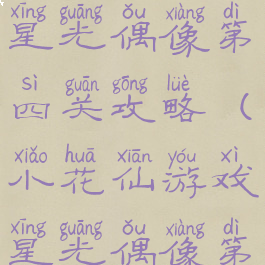 xīng guāng ǒu xiàng dì
星光偶像第
sì guān gōng lüè
四关攻略（
xiǎo huā xiān yóu xì
小花仙游戏
xīng guāng ǒu xiàng dì
星光偶像第